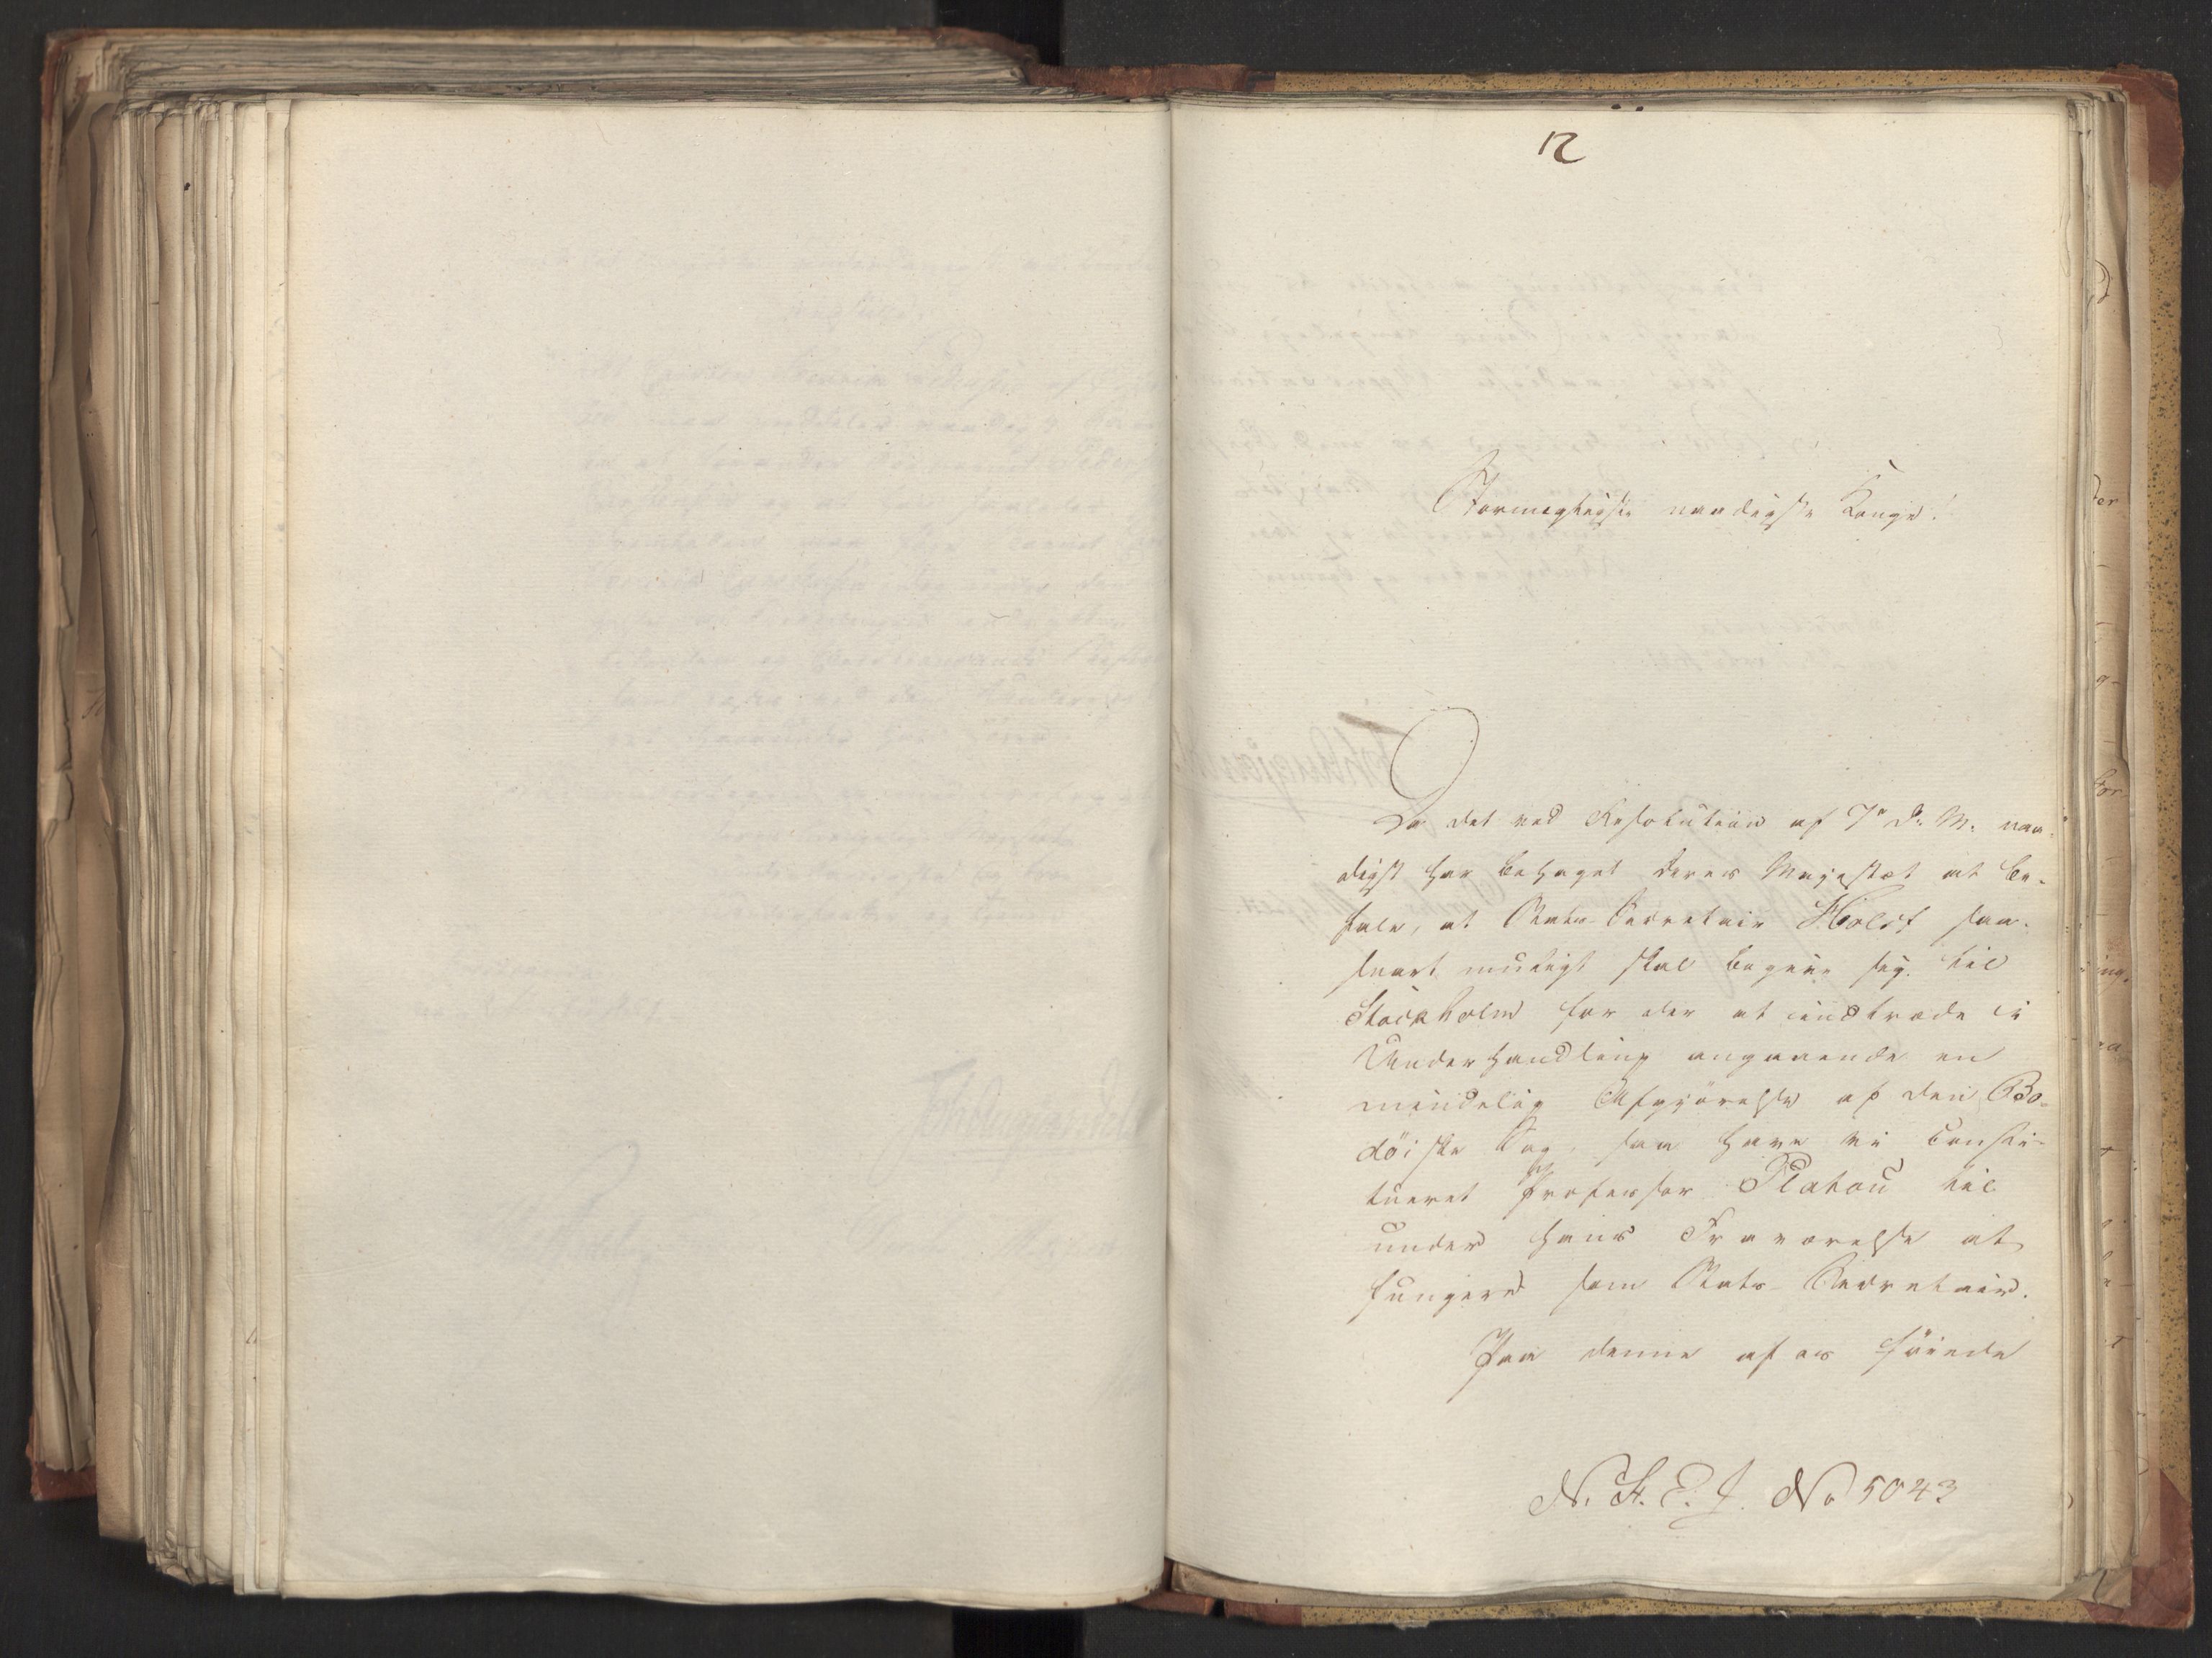 12
Stormægtigste naadigste Konge!
Da det ved Resolution af 7de d. M. naa-
digst har behaget Deres Majestæt at be-
fale, at Stats-Secretair Holst saa-
snart muligt skal begive sig til
Stockholm for der at indtræde i
Underhandling angaaende en
mindelig Afgjørelse af den Bo-
döiske Sag, saa have vi consti-
tueret Professor Platou til
under hans Fraværelse at
fungere som Stats-Secretair.
Paa denne af os föiede
N. St. E. J. No 5043